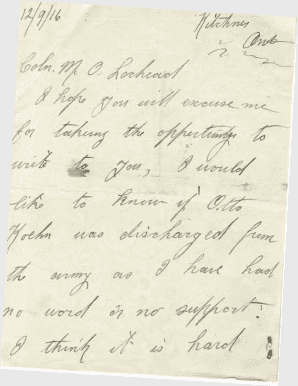 12/9/16
Kitchner
Ont
Coln. M. O. Lochead
I hope you will excuse me
for taking the opportunity to
write to you, I would
like to know if Otto
Koehn was discharged from
the army as I have had
no word or no support.
I think it is hard